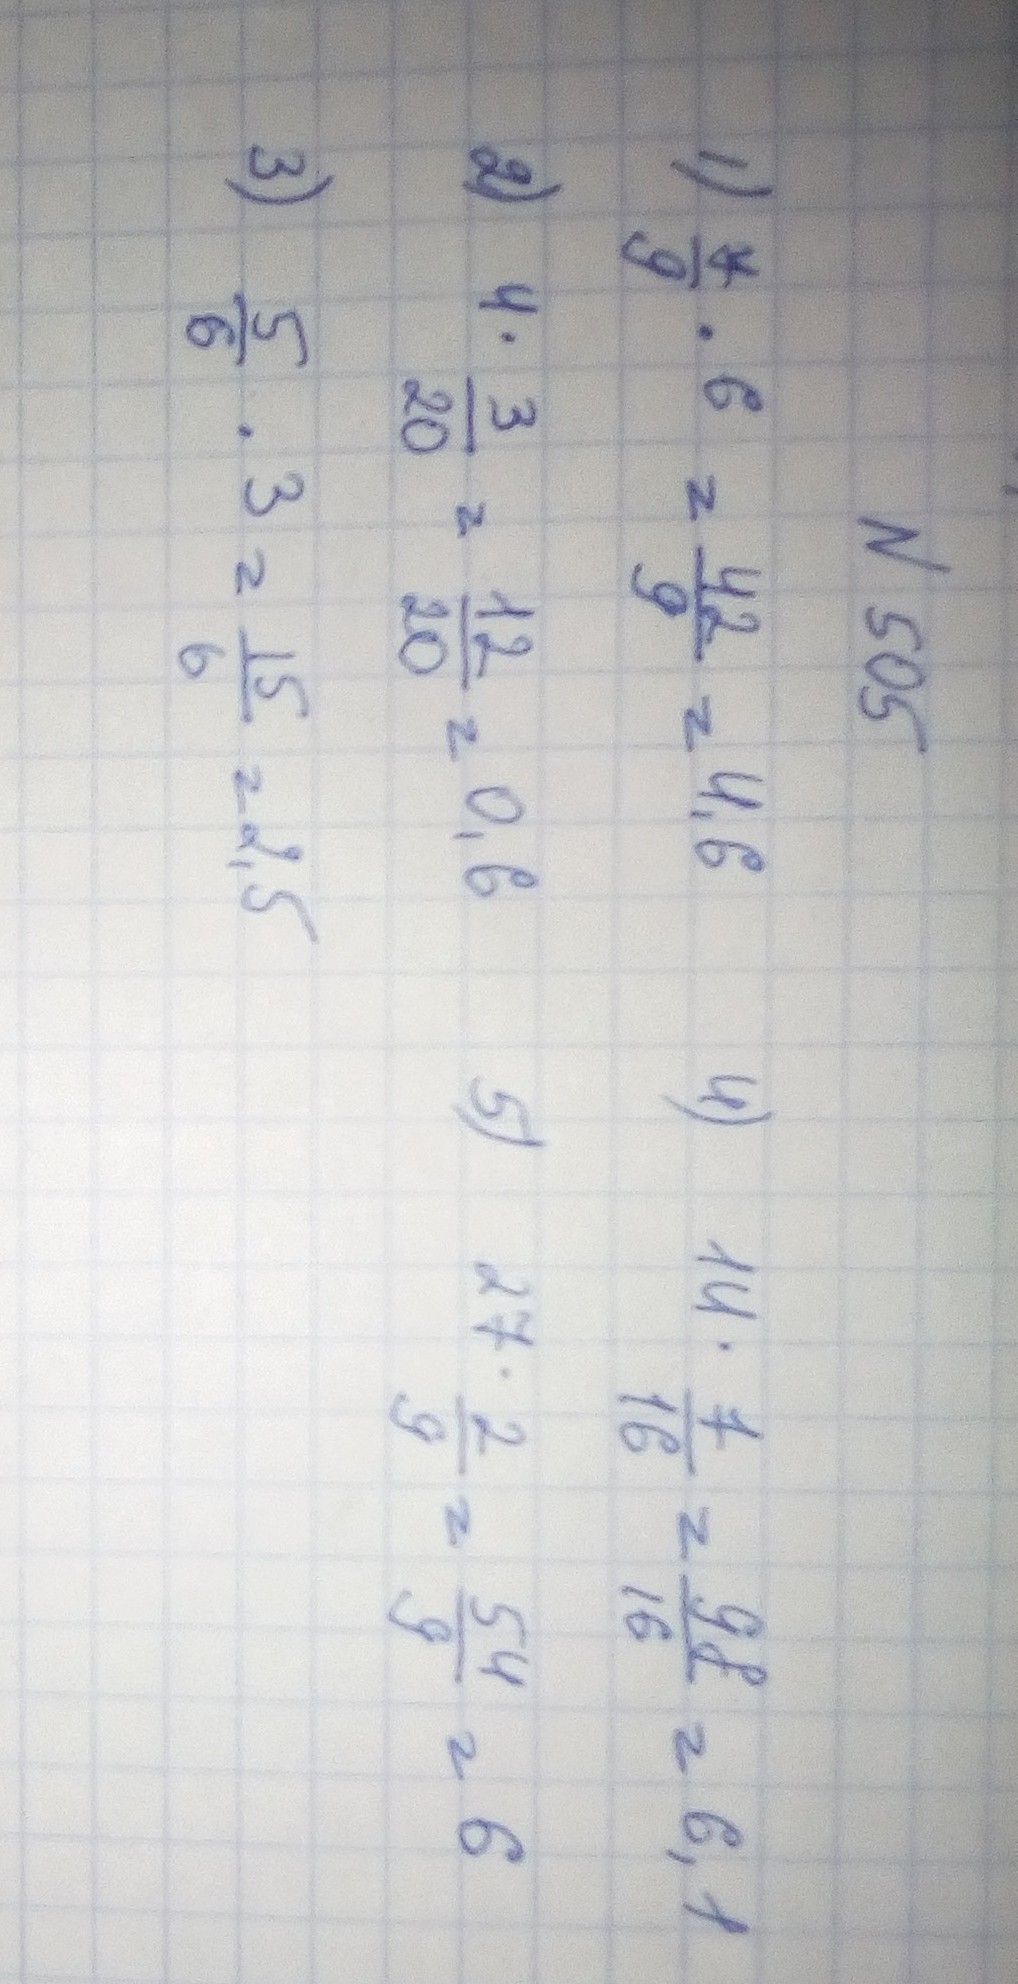 N 505
1) 7/9 · 6 = 42/9 = 4,6
2) 4 · 3/20 = 12/20 = 0,6
3) 5/6 · 3 = 15/6 = 2,5
4) 14 · 7/16 = 98/16 = 6,1
5) 27 · 2/9 = 54/9 = 6